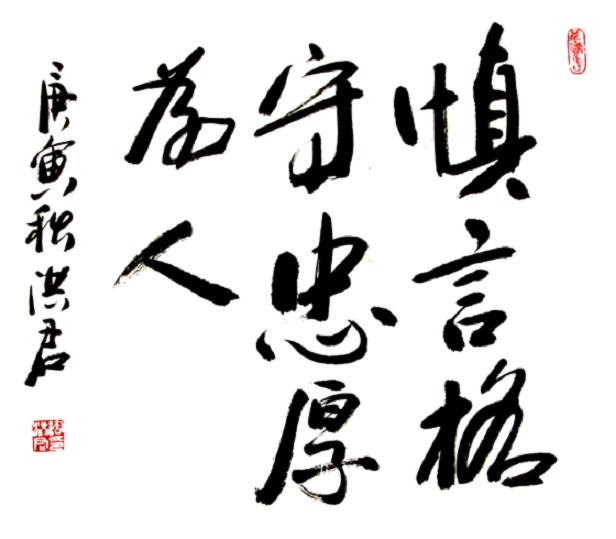 慎言格
守忠厚
為人
庚寅秋洪君